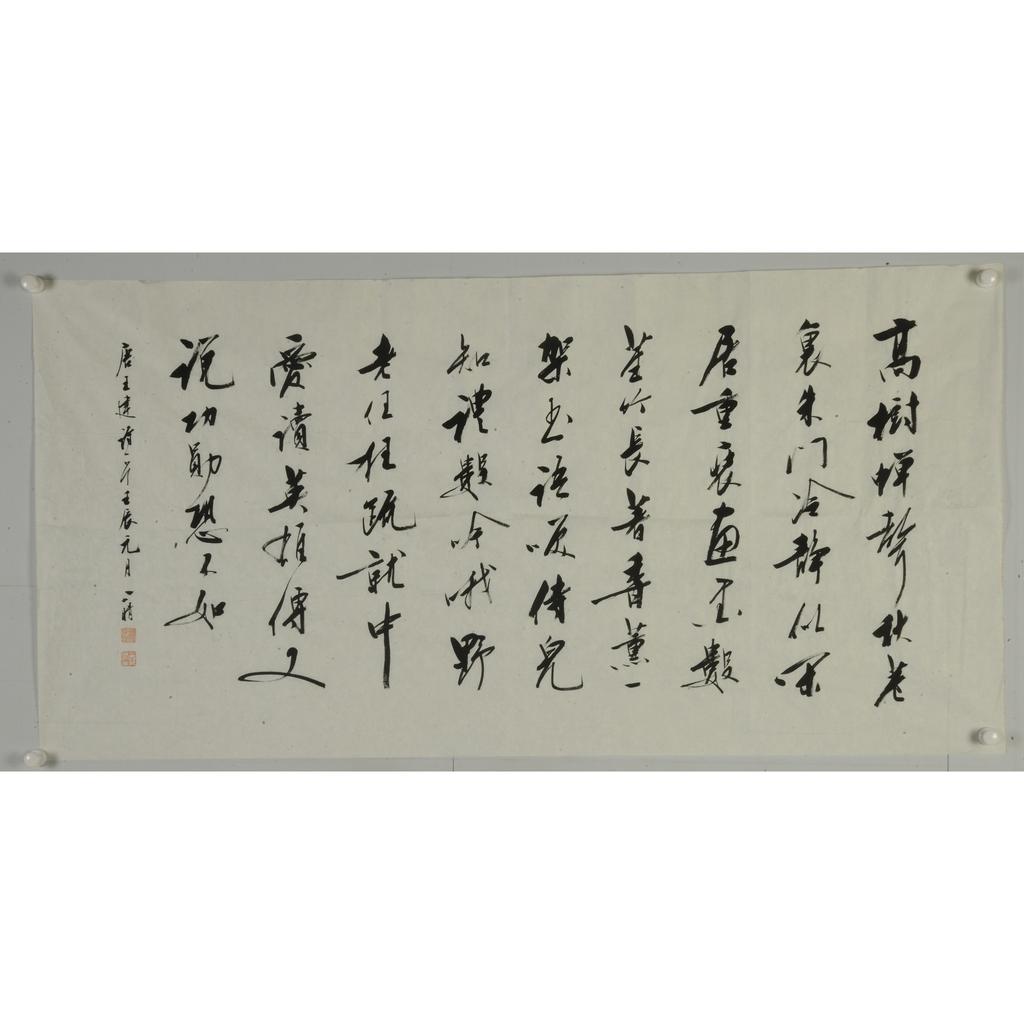 高樹蟬聲秋巷
裏朱門冷靜似閑
居重裝畫數
莖竹長著香薰一
架書語笑侍兒
知禮數吟哦野
老任狂疏就中
愛讀英雄傳又
說功勳恐不如
唐王建詩一章壬辰元月